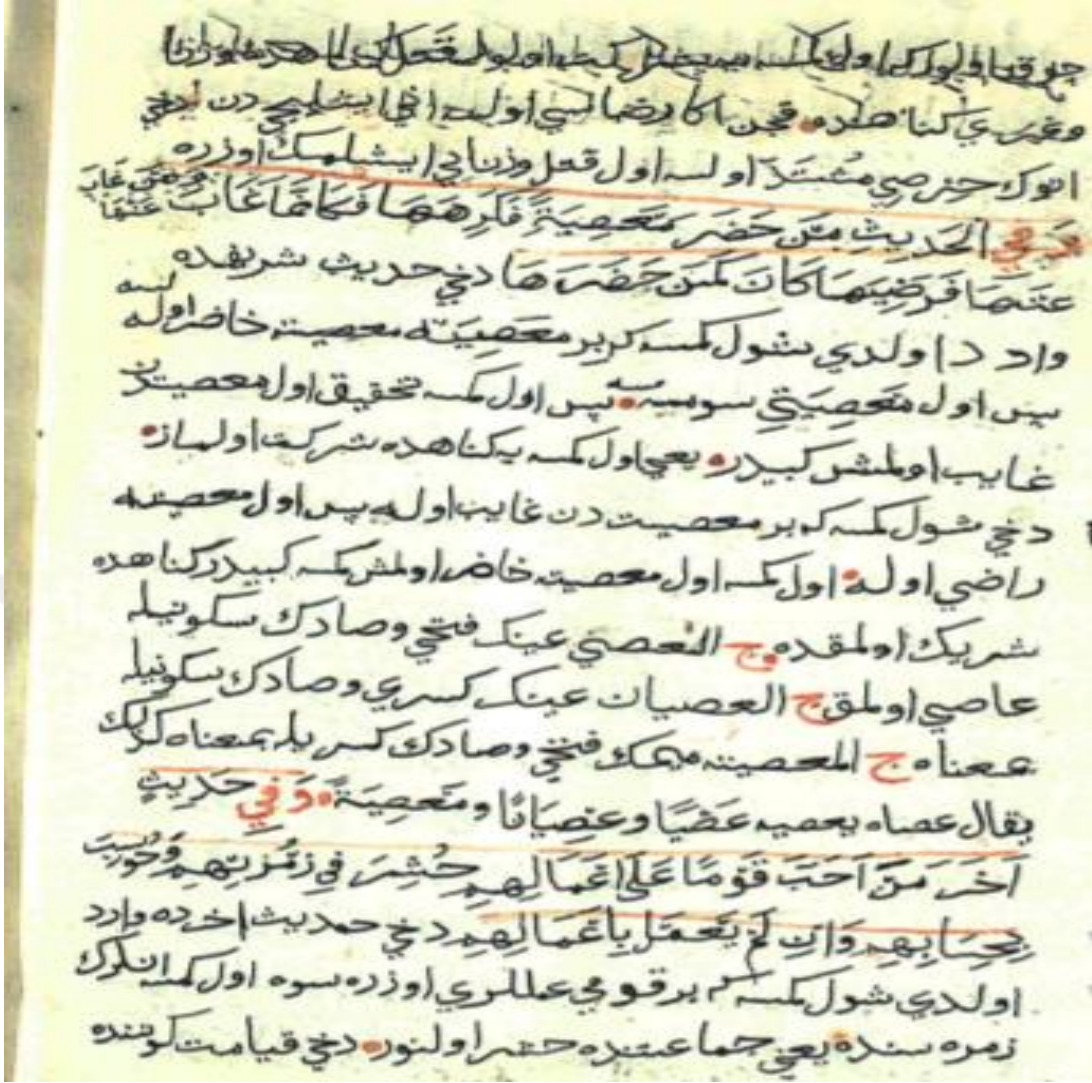 وغيري كناهلده قچن اكا رضالسي اولسه اني ايشليجي دن دخي
انوك حرصي مشتدّ اولسه اول قتل وزنايي ايشلمك اوزره
وَفِي الْحَدِيثِ مَنْ حَضَرَ مَعْصِيَةً فَكَرِهَهَا فَكَأَنَّمَا غَابَ عَنْهَا وَمَنْ غَابَ
عَنْهَا فَرَضِيَهَا كَانَ كَمَنْ حَضَرَهَا دخي حديث شريفده
وارد اولدي شول كمسه كه بر مَعْصِيَتَه معصيته حاضر اولسه
پس اول مَعْصِيَتِي سومسه پس اول كمسه تحقيق اول معصيتدن
غايب اولمش كبيدر يعني اول كمسه يه كناهده شركت اولماز
دخي شول كمسه كه بر معصيت دن غايب اوله پس اول معصيته
راضي اوله اول كمسه اول معصيته حاضر اولمش كمسه كبيدر كناهده
شريك اولمقده ج العصي عينك فتحي وصادك سكونيله
عاصي اولمق ج العصيان عينك كسري وصادك سكونيله
بمعناه ج المعصيته ميمك فتحي وصادك كسريله بمعناه كذلك
يقال عصاه يعصيه عَصْيًا وعِصْيَانًا ومَعْصِيَةً وَفِي حَدِيثٍ
آخَرَ مَنْ اَحَبَّ قَوْمًا عَلَى اَعْمَالِهِمْ حُشِرَ فِي زُمْرَتِهِمْ وَحُوسِبَ
بِحِسَابِهِمْ وَاِنْ لَمْ يَعْمَلْ بِاَعْمَالِهِمْ دخي حديث اخرده وارد
اولدي شول كمسه كه بر قومي عمللري اوزره سوه اول كمسه انلرك
زمره سنده يعني جماعتنده حشر اولنور دخي قيامت كوننده